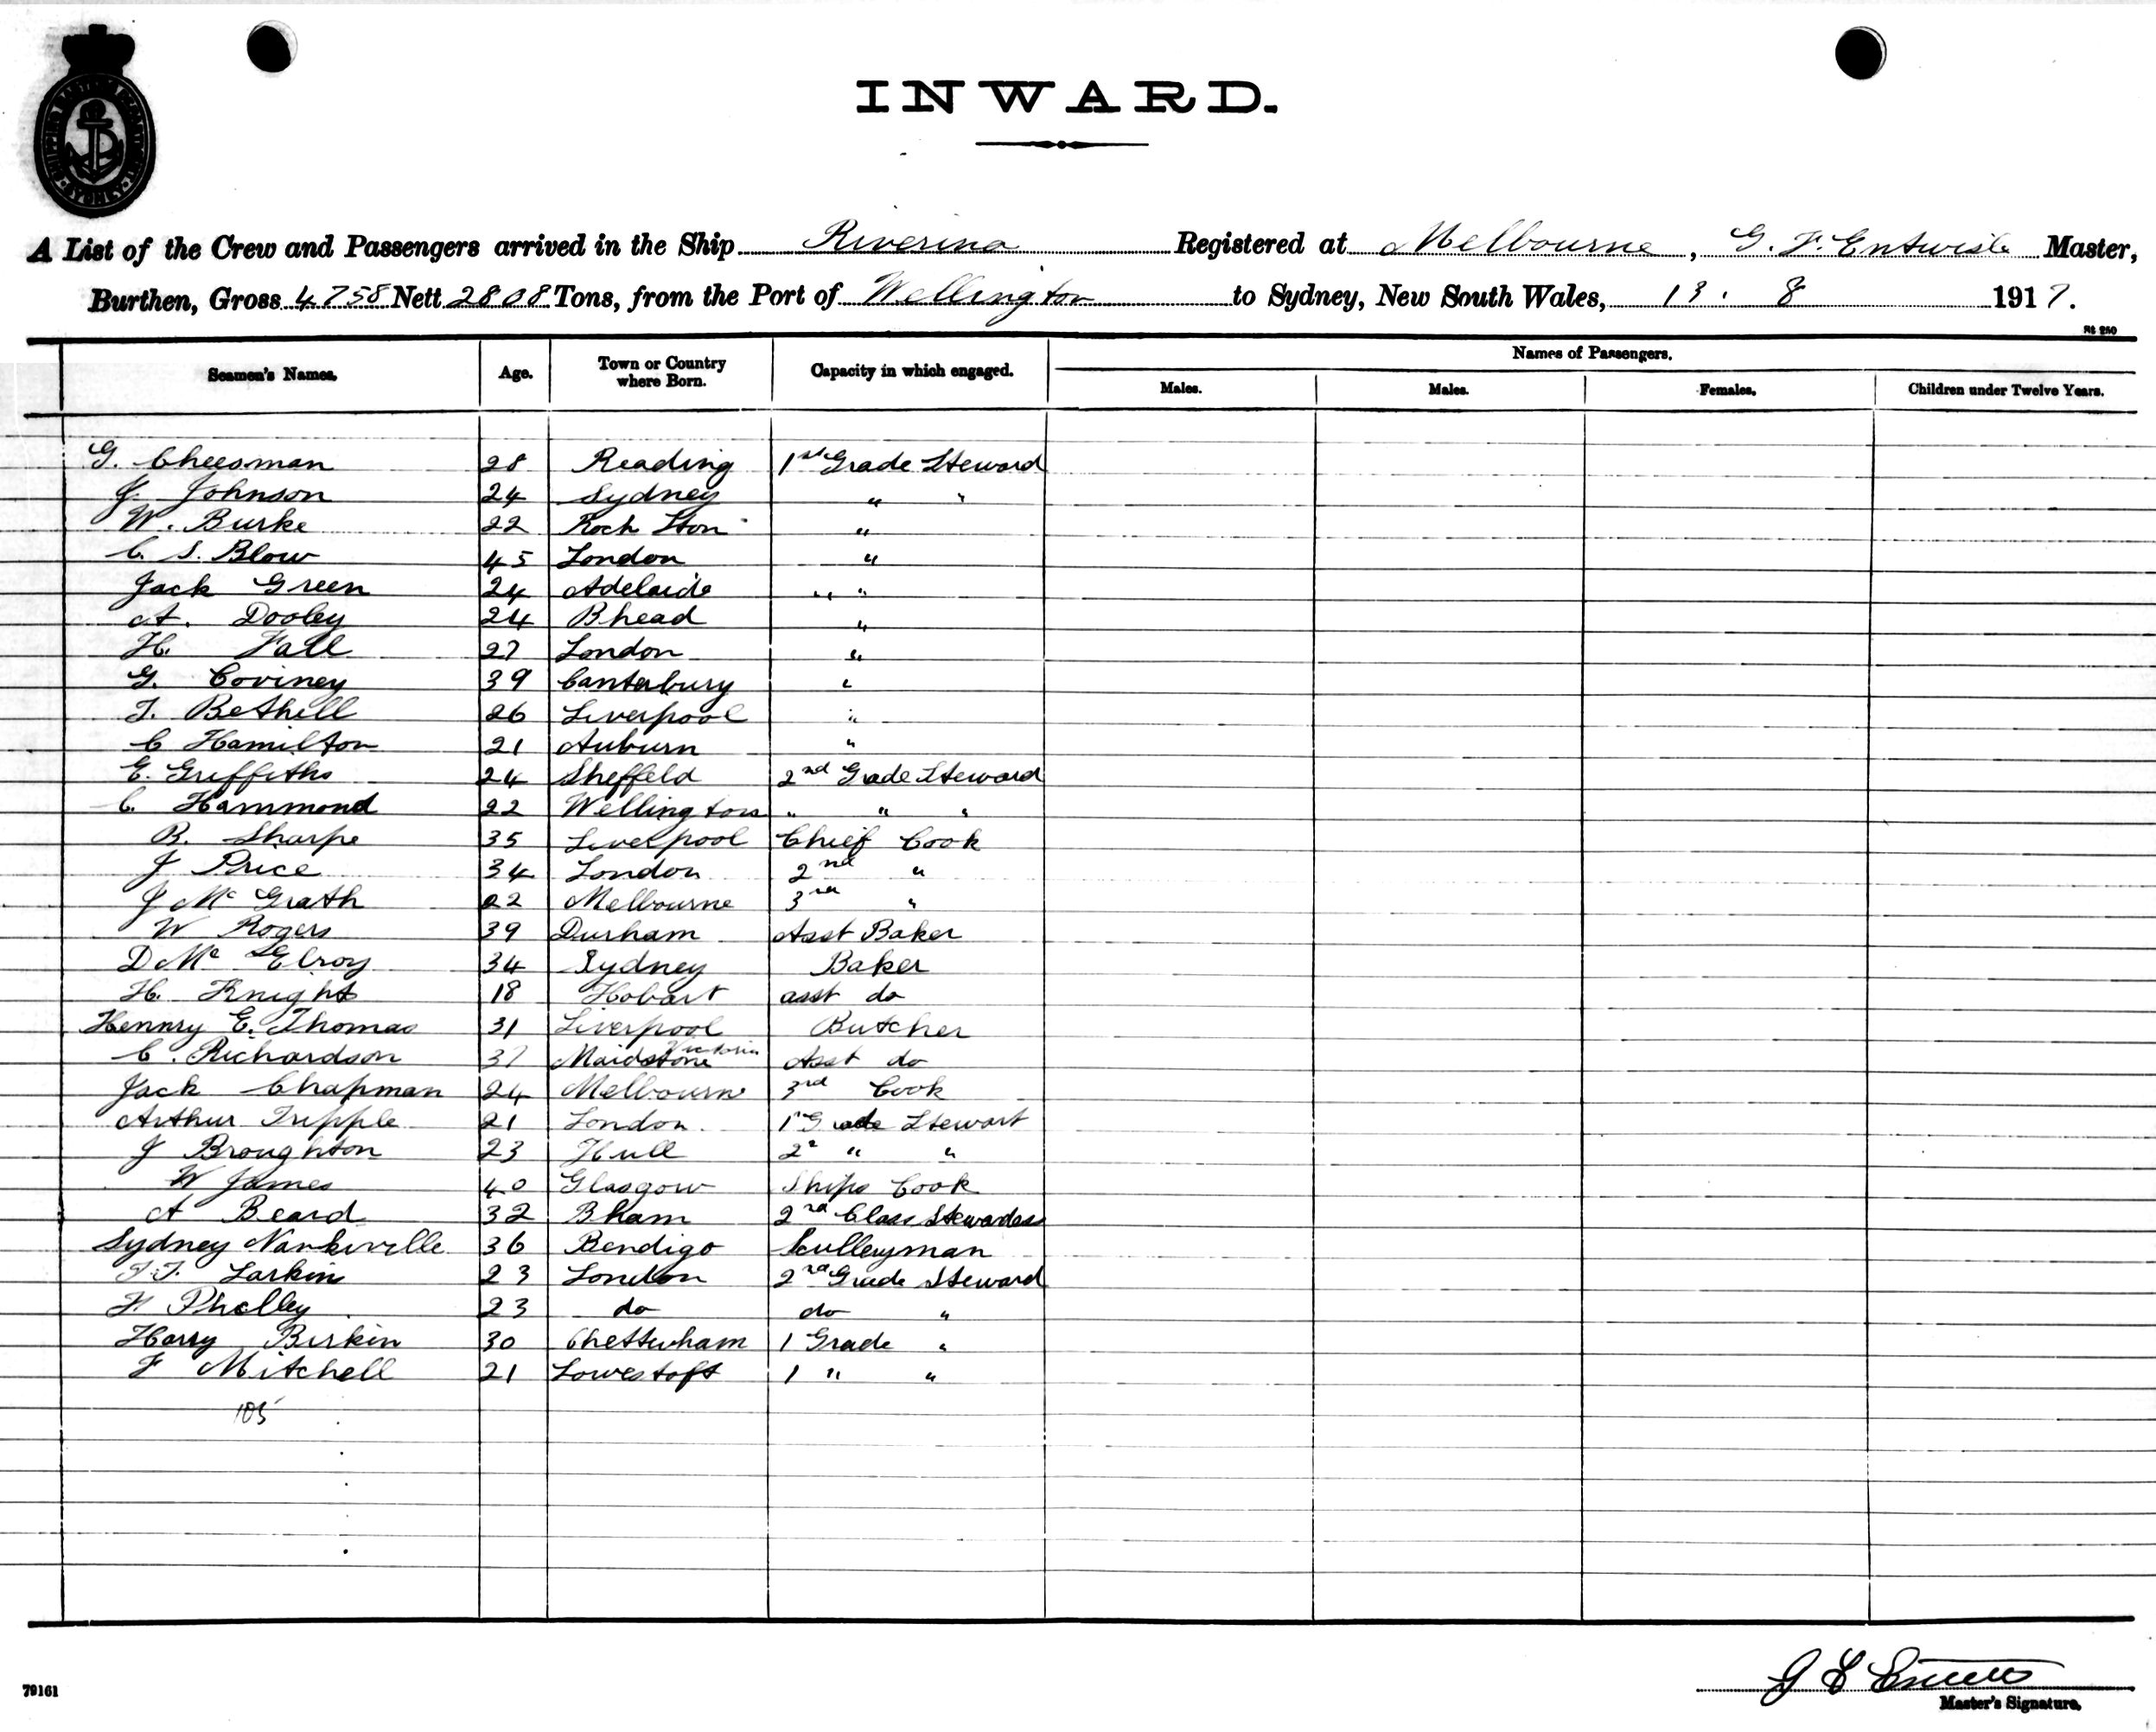 INWARD.
A List of the Crew and Passengers arrived in the Ship Riverina Registered at Melbourne, G. F. Entwisle Master,
Burthen, Gross 4758 Nett 2808 Tons, from the Port of Wellington to Sydney, New South Wales, 13. 8 1917.
Seamen's Names. Age. Town or Country where Born. Capacity in which engaged. Names of Passengers.
Males. Males. Females. Children under Twelve Years.
G. Cheesman 28 Reading 1st Grade Steward
J. Johnson 24 Sydney " "
W. Burke 22 Rock Ston "
C. S. Blow 45 London "
Jack Green 24 Adelaide " "
A. Dooley 24 Bhead "
H. Hall 27 London "
G. Coviney 39 Canterbury "
T. Bethell 26 Liverpool "
C Hamilton 21 Auburn "
E. Griffiths 24 Sheffeld 2nd Grade Steward
C. Hammond 22 Wellington " " "
B. Sharpe 35 Liverpool Chief Cook
J Price 34 London 2nd "
J Mc Grath 22 Melbourne 3rd "
W Rogers 39 Durham Asst Baker
D Mc Elroy 34 Sydney Baker
H. Knight 18 Hobart asst do
Hennry E. Thomas 31 Liverpool Butcher
C. Richardson 37 Maidstone Victoria Asst do
Jack Chapman 24 Melbourne 3rd Cook
Arthur Tripple 21 London. 1st Grade Stewart
J Broughton 23 Hull 2d " "
W James 40 Glasgow Ships Cook
A Beard 32 Bham 2nd Class Stewardess
Sydney Nankiville 36 Bendigo Sculleyman
T. Larkin 23 London 2nd Grade Steward
Phelley 23 do do "
Harry Birkin 30 Cheltenham 1 Grade "
F Mitchell 21 Lowestoft 1 " "
105
79161
Master's Signature.